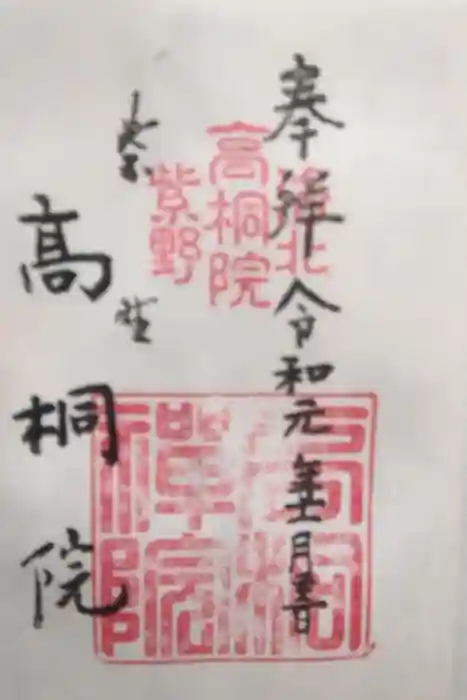 奉拝 令和元年
洛北
高桐院
紫野
高桐
禅院
紫
高桐院